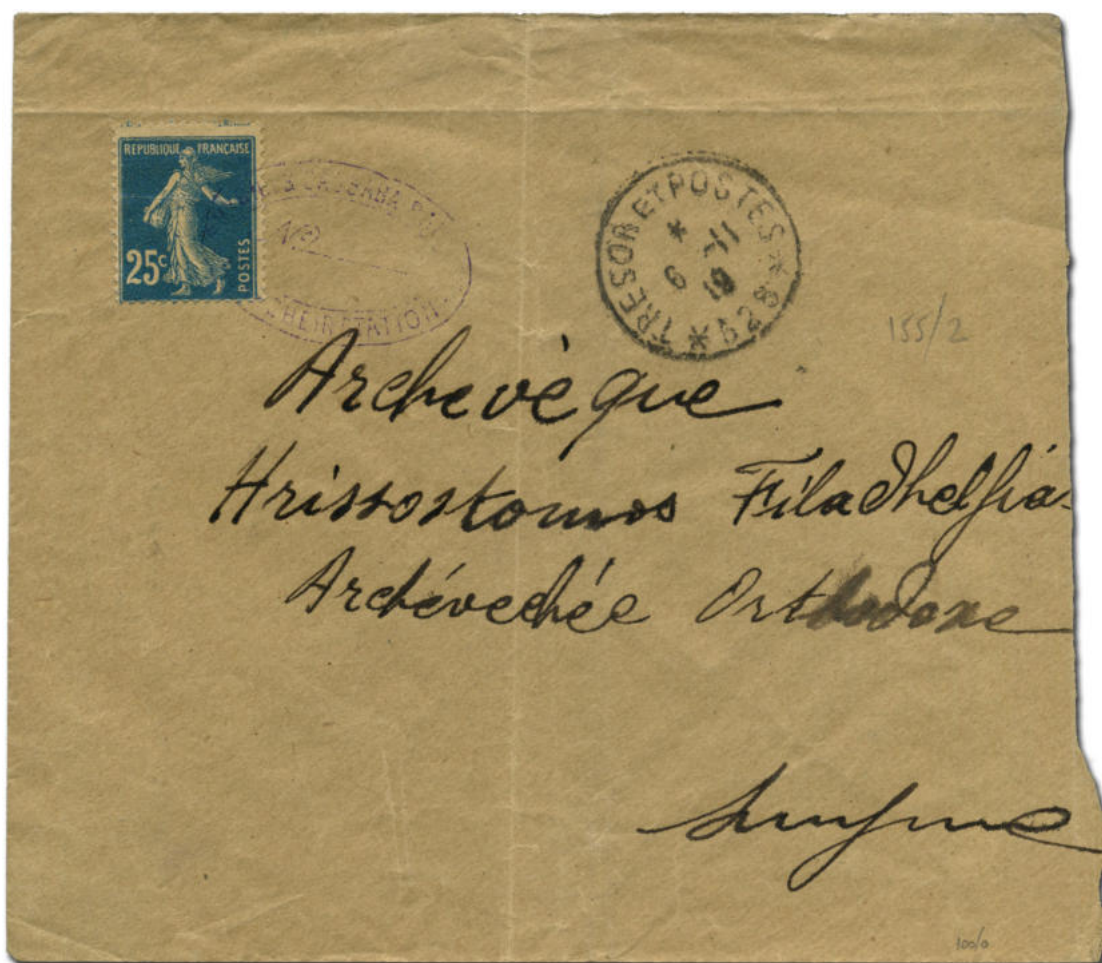 REPUBLIQUE FRANÇAISE
25c
POSTES
TRESOR ET POSTES * 528 *
* 6 -11 19
155/2
Archevèque
Hrissostomos Filadhelfia-
Archévechée Orthodoxe
Smyrne
100/0